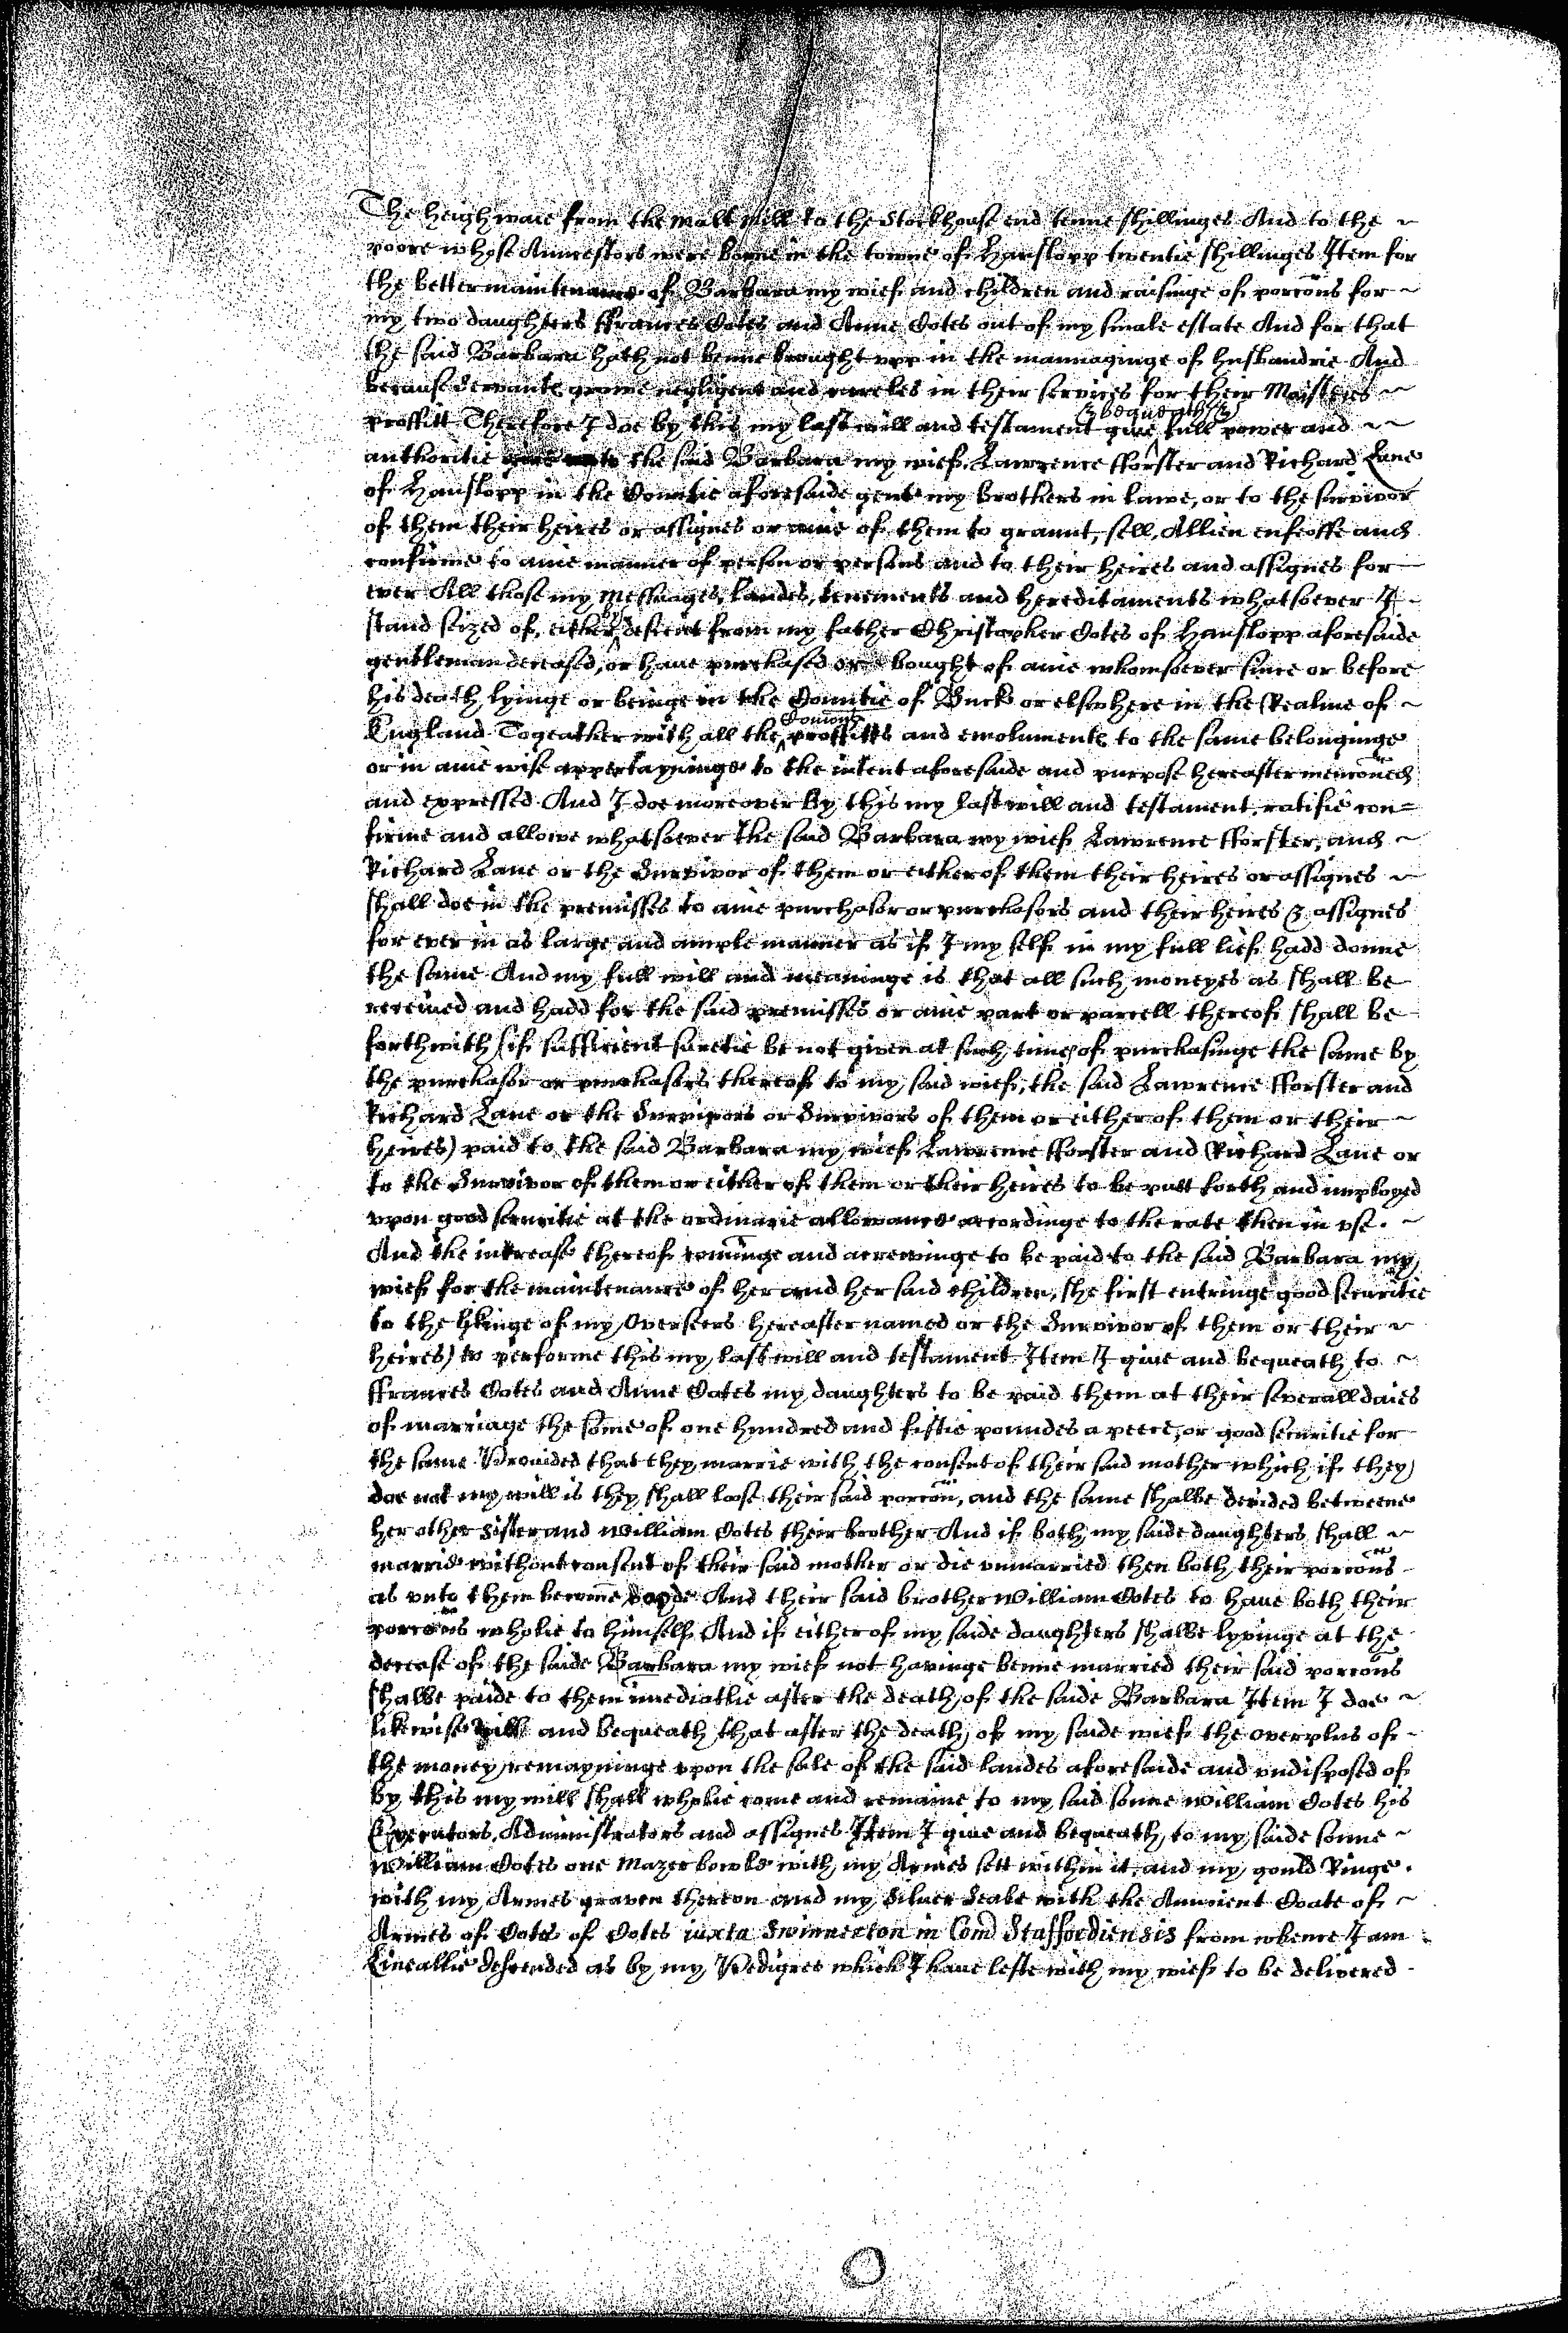 The heighwaie from the malt mill to the Stockhouse end tenne shillinges And to the
poore whose Auncestors were borne in the towne of Hanslopp twentie shillinges Item for
the better maintenance of Barbara my wief and children and raisinge of porcõns for
my two daughters ffrances Cotes and Anne Cotes out of my smale estate And for that
the said Barbara hath not benne brought vpp in the mannaginge of husbandrie And
because servants growe negligent and careles in their services for their Maisters
(& bequeath &)
proffitt Therefore I doe by this my last will and testament give full power and
authoritie the said Barbara my wief, Lawrence fforster and Richard Lane
of Hanslopp in the Countie aforesaide gent my brothers in lawe, or to the survivor
of them their heires or assignes or anie of them to graunt, sell, Allien enfeoffe and
confirme to anie manner of person or persons and to their heires and assignes for
ever All those my messuages, landes, tenements and hereditaments whatsoever I
by
stand seized of, either descent from my father Christopher Cotes of Hanslopp aforesaide
gentleman deceased, or have purchased or bought of anie whomsoever since or before
his death lyinge or beinge in the Countie of Buck or elswhere in the Realme of
Comons
England Togeather with all the proffitts and emoluments to the same belonginge
or in anie wise appertayninge to the intent aforesaide and purpose hereafter mencõned
and expressed And I doe moreover by this my last will and testament ratifie con=
firme and allowe whatsoever the said Barbara my wief Lawrence fforster, and
Richard Lane or the Survivor of them or either of them their heires or assignes
shall doe in the premisses to anie purchasor or purchasors and their heires & assignes
for ever in as large and ample manner as if I my self in my full lief hadd donne
the same And my full will and meaninge is that all such moneyes as shall be
receiued and hadd for the said premisses or anie part or parcell thereof shall be
forthwith (if sufficient suretie be not given at such time of purchasinge the same by
the purchasor or purchasors thereof to my said wief, the said Lawrence fforster and
Richard Lane or the Survivors or Survivors of them or either of them or their
heires) paid to the said Barbara my wief Lawrence fforster and Richard Lane or
to the Survivor of them or either of them or their heires to be putt forth and imployed
vpon good securitie at the ordinarie allowance accordinge to the rate then in vse.
And the increase thereof cominge and accrewinge to be paid to the said Barbara my
wief for the maintenance of her and her said children, she first entringe good securitie
to the likinge of my Overseers hereafter named or the Survivor of them or their
heires) to performe this my last will and testament Item I giue and bequeath to
ffrances Cotes and Anne Cotes my daughters to be paid them at their severall daies
of marriage the some of one hundred and fiftie poundes a peece, or good securitie for
the same Prouided that they marrie with the consent of their said mother which if they
doe not my will is they shall loose their said porcõn, and the same shalbe devided betweene
her other Sister and William Cotes their brother And if both my saide daughters shall
marrie without consent of their said mother or die vnmarried then both their porcõns
as vnto them become voyde And their said brother William Cotes to haue both their
porcõns wholie to himself And if either of my saide daughters shalbe lyvinge at the
decease of the saide Barbara my wief not havinge benne married their said porcõns
shalbe paide to them imediatlie after the death of the saide Barbara Item I doe
likewise will and bequeath that after the death of my saide wief the overplus of
the money remayninge vpon the sale of the said landes aforesaide and vndisposed of
by this my will shall wholie come and remaine to my said sonne William Cotes his
Executors, Administrators and assignes Item I giue and bequeath to my saide sonne
William Cotes one Mazer bowle with my Armes sett within it, and my gould Ringe.
with my Armes graven thereon and my Silver Seale with the Auncient Coate of
Armes of Cotes of Cotes iuxta Swinnerton in Com Staffordiensis from whence I am
Lineallie descended as by my Pedigree which I haue lefte with my wief to be delivered